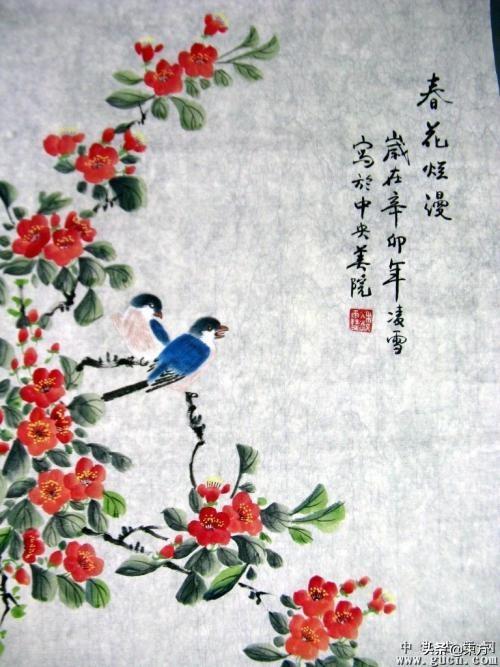 春花烂漫
岁在辛卯年凌雪
寫於中央美院
头条@东方
www.gucn.com